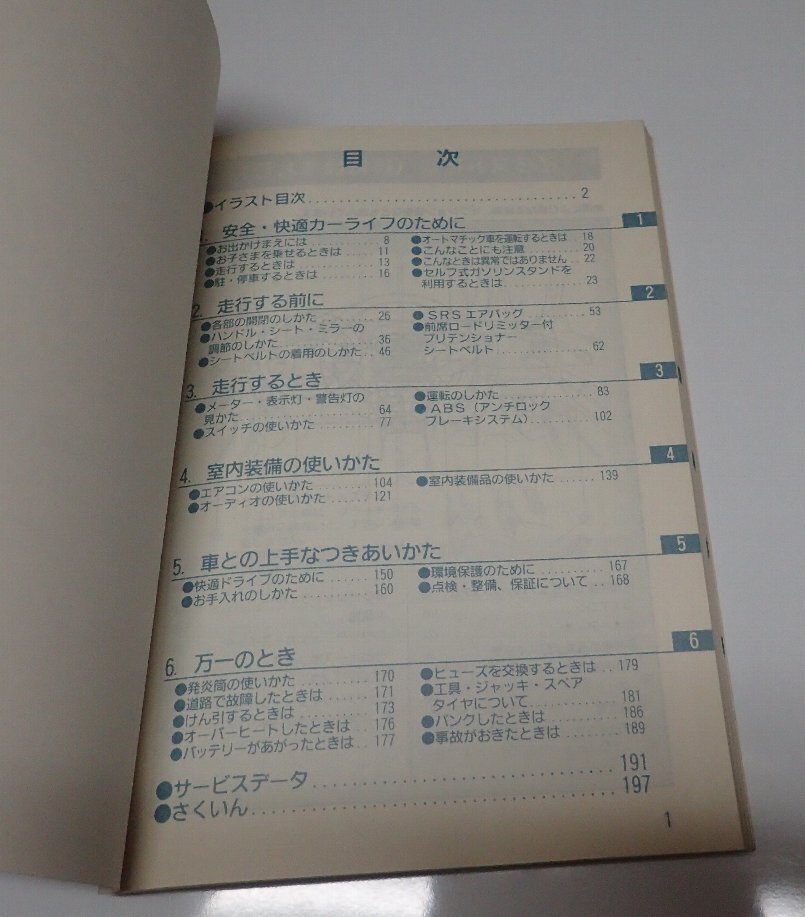 目 次
●イラスト目次 2
1. 安全・快適カーライフのために 1
●お出かけまえには 8
●お子さまを乗せるときは 11
●走行するときは 13
●駐・停車するときは 16
●オートマチック車を運転するときは 18
●こんなことにも注意 20
●こんなときは異常ではありません 22
●セルフ式ガソリンスタンドを
利用するときは 23
2. 走行する前に 2
●各部の開閉のしかた 26
●ハンドル・シート・ミラーの
調節のしかた 36
●シートベルトの着用のしかた 46
●SRSエアバッグ 53
●前席ロードリミッター付
プリテンショナー
シートベルト 62
3. 走行するとき 3
●メーター・表示灯・警告灯の
見かた 64
●スイッチの使いかた 77
●運転のしかた 83
●ABS(アンチロック
ブレーキシステム) 102
4. 室内装備の使いかた 4
●エアコンの使いかた 104
●オーディオの使いかた 121
●室内装備品の使いかた 139
5. 車との上手なつきあいかた 5
●快適ドライブのために 150
●お手入れのしかた 160
●環境保護のために 167
●点検・整備、保証について 168
6. 万一のとき 6
●発炎筒の使いかた 170
●道路で故障したときは 171
●けん引するときは 173
●オーバーヒートしたときは 176
●バッテリーがあがったときは 177
●ヒューズを交換するときは 179
●工具・ジャッキ・スペア
タイヤについて 181
●パンクしたときは 186
●事故がおきたときは 189
●サービスデータ 191
●さくいん 197
1